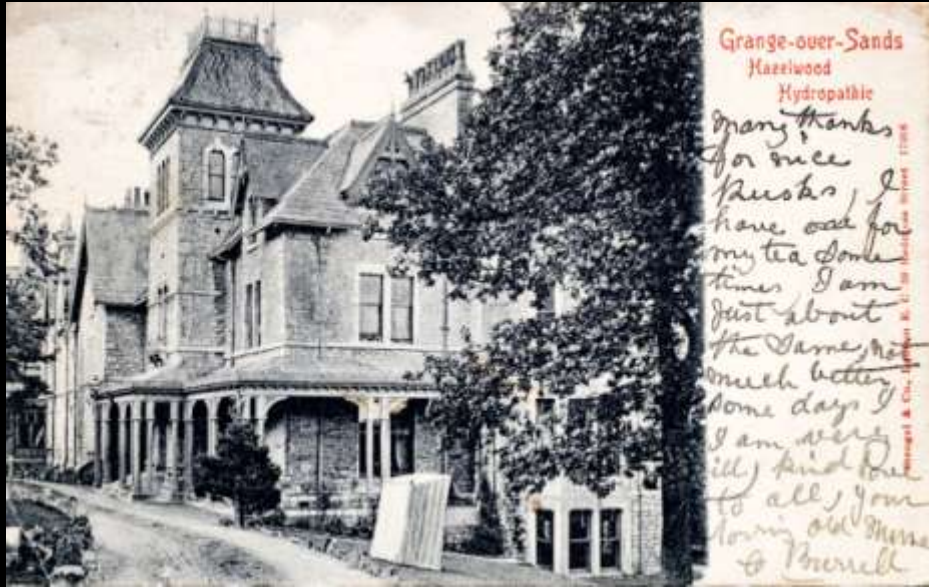 Grange-over-Sands
Hazelwood
Hydropathic
Many thanks
for nice
Rusks, I
have one for
my tea some
times I am
Just about
the Same, not
much better
Some days I
I am very
ill, kind love
to all, your
loving old
Burrell
Stengel & Co., London E. C.